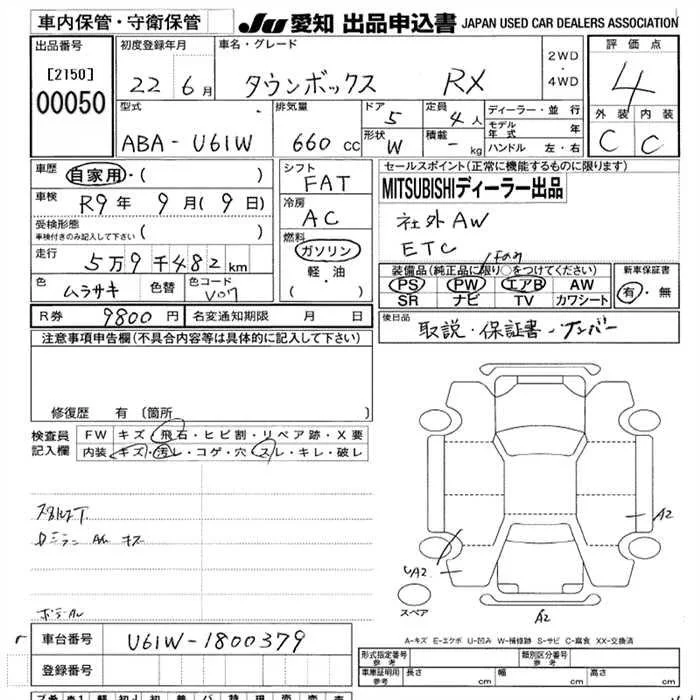 車内保管・守衛保管
JU 愛知 出品申込書 JAPAN USED CAR DEALERS ASSOCIATION
出品番号 初度登録年月 車名・グレード 評価点
[2150]
00050
22 6月 タウンボックス RX
2WD
・
4WD
4
外装 内装
C C
型式 排気量 ドア 定員 ディーラー・並行
ABA-U61W 660 cc 5 4人
モデル年式 年
形状 W 積載 - kg
ハンドル 左・右
車歴 自家用・( )
車検 R9年 9月(9日)
受検形態
車検付きのみ記入して下さい ( )
走行 5万9千482km
色 ムラサキ 色替 色コード
シフト
FAT
冷房
AC
燃料
ガソリン
軽・油
( ・ )
セールスポイント(正常に機能するものに限ります)
MITSUBISHIディーラー出品
社外AW
ETC
装備品(純正品に限り○をつけてください)
PS PW エアB AW
SR ナビ TV カワシート
新車保証書
有・無
R券 9800円 名変通知期限 月 日
後日品
取説・保証書・ナンバー
注意事項申告欄(不具合内容等は具体的に記入して下さい)
修復歴 有 〔箇所 〕
検査員
記入欄
FW キズ・飛石・ヒビ割・リペア跡・X要
内装 キズ・汚レ・コゲ・穴 スレ・キレ・破レ
A2
A2
A2
スペア
A-キズ E-エクボ U-凹み W-補修跡 S-サビ C-腐食 XX-交換済
車台番号 U61W-1800379
登録番号
形式指定番号
参考
類別区分番号
参考
車庫証明用
参考
長さ cm 幅 cm 高さ cm